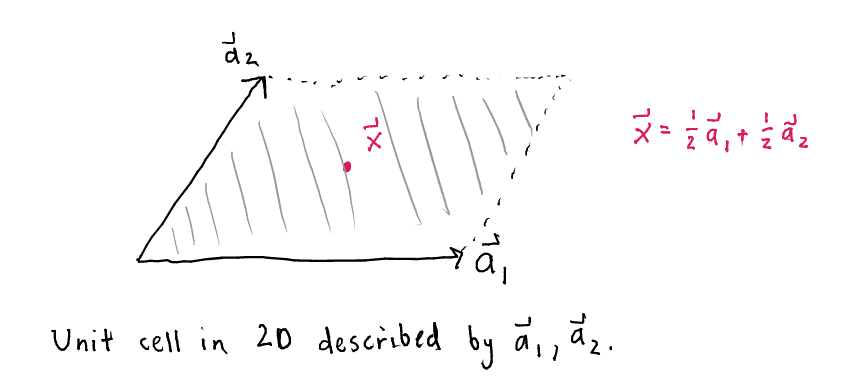 a⃗₂
x⃗
x⃗ = ½ a⃗₁ + ½ a⃗₂
a⃗₁
Unit cell in 2D described by a⃗₁, a⃗₂.